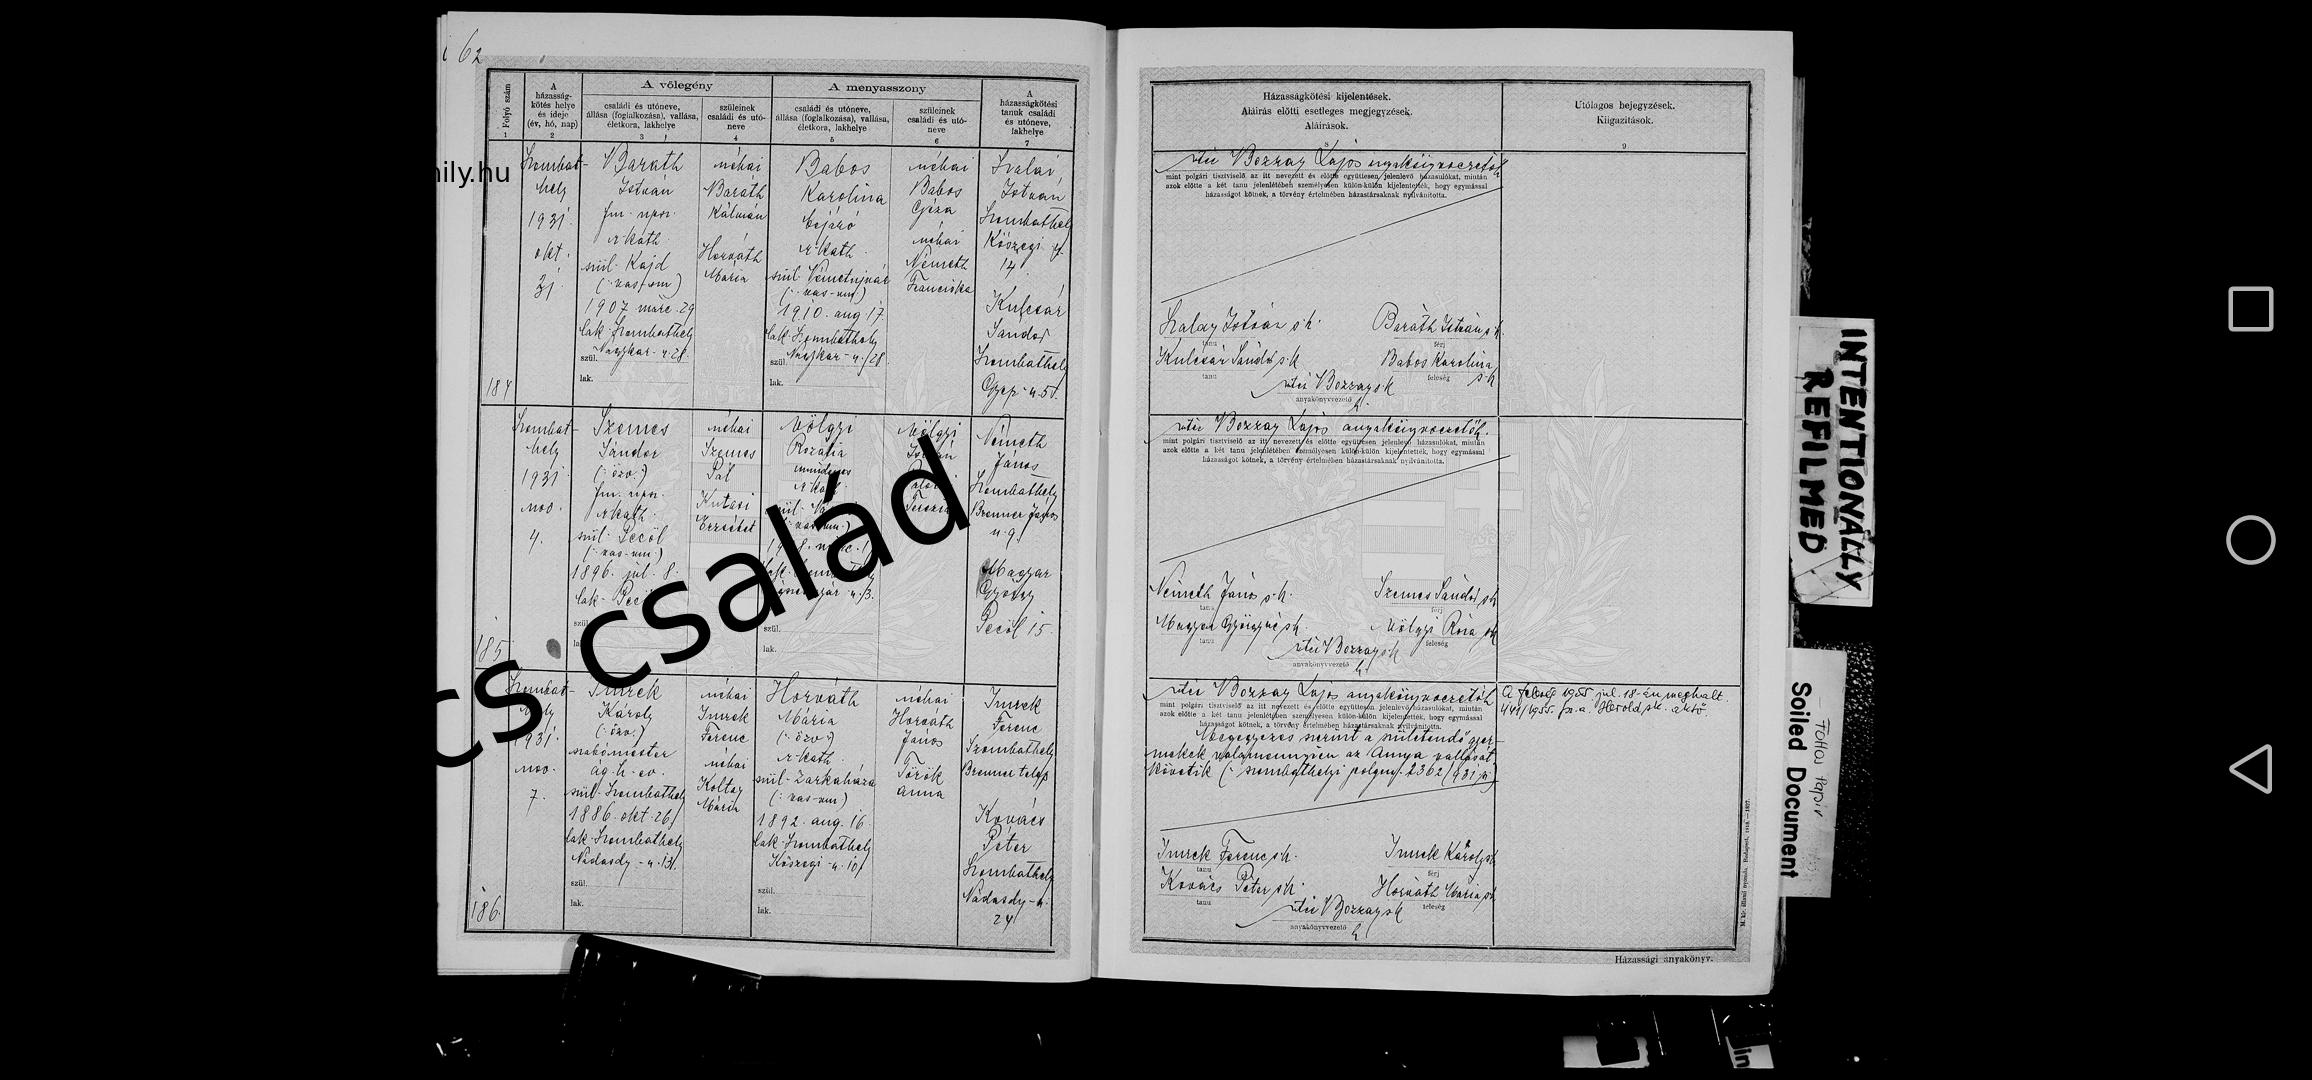 62
mily.hu
Folyó szám
A
házasság-
kötés helye
és ideje
(év, hó, nap)
A vőlegény
családi és utóneve,
állása (foglalkozása), vallása,
életkora, lakhelye
szüleinek
családi és utó-
neve
A menyasszony
családi és utóneve,
állása (foglalkozása), vallása,
életkora, lakhelye
szüleinek
családi és utó-
neve
A
házasságkötési
tanuk családi
és utóneve,
lakhelye
1 2 3 4 5 6 7
184
Szombat-
hely
1931
okt.
31
Baráth
István
r. kath.
szül. Kajd
(: vas-vm)
1907 márc. 29
lak. Szombathely
Nagykar-u. 28.
szül.
lak.
néhai
Baráth
Kálmán
Horváth
Mária
Babos
Karolina
r. kath.
szül. Németujvár
(: vas-vm)
1910. aug 17
lak. Szombathely
Nagykar-u. 28
szül.
lak.
néhai
Babos
Géza
néhai
Németh
Franciska
Szalai
István
Szombathely
Kőszegi
14
Kulcsár
Sándor
Szombathely
Gyep-u. 5.
185
Szombat-
hely
1931
nov.
4.
Szemes
Sándor
(: özv.)
r. kath.
szül. Pecöl
(: vas-vm:)
1896. júl. 8.
lak.
szül.
néhai
Szemes
Pál
Kutasi
Erzsébet
Völgyi
Rozália
mindenes
szül.
lak.
Völgyi
Terézia
Németh
János
Szombathely
Brenner János
u. 9.
Magyar
György
Pecöl 15.
cs család
186.
Szombat-
hely
1931
nov.
7.
Imrek
Károly
(: özv.)
szabómester
ág. h. ev.
szül. Szombathely
1886. okt. 26
lak. Szombathely
Nádasdy-u. 13.
szül.
lak.
néhai
Imrek
Ferenc
néhai
Koltay
Mária
Horváth
Mária
(: özv.)
r. kath.
szül. Zarkaháza
(: vas-vm)
1892. aug. 16.
lak. Szombathely
Kőszegi-u. 10
szül.
lak.
néhai
Horváth
János
Török
Anna
Imrek
Ferenc
Szombathely
Brenner telep
Kovács
Péter
Szombathely
Nádasdy-u.
24
Házasságkötési kijelentések.
Aláírás előtti esetleges megjegyzések.
Aláírások.
8
Utólagos bejegyzések.
Kiigazítások.
9
vitéz Bozzay Lajos anyakönyvvezető
mint polgári tisztviselő az itt nevezett és előtte együttesen jelenlevő házasulókat, miután
azok előtte a két tanu jelenlétében személyesen külön-külön kijelentették, hogy egymással
házasságot kötnek, a törvény értelmében házastársaknak nyilvánította.
Szalay István s.k.
tanu
Baráth István s.k.
férj
Kulcsár Sándor s.k.
tanu
Babos Karolina
s.k.
feleség
vitéz Bozzay s.k.
anyakönyvvezető
h.
vitéz Bozzay Lajos anyakönyvvezető h.
mint polgári tisztviselő az itt nevezett és előtte együttesen jelenlevő házasulókat, miután
azok előtte a két tanu jelenlétében személyesen külön-külön kijelentették, hogy egymással
házasságot kötnek, a törvény értelmében házastársaknak nyilvánította.
Németh János s.k.
tanu
Szemes Sándor s.k.
férj
Magyar György s.k.
tanu
Völgyi Róza s.k.
feleség
vitéz Bozzay s.k.
anyakönyvvezető
h.
vitéz Bozzay Lajos anyakönyvvezető h.
mint polgári tisztviselő az itt nevezett és előtte együttesen jelenlevő házasulókat, miután
azok előtte a két tanu jelenlétében személyesen külön-külön kijelentették, hogy egymással
házasságot kötnek, a törvény értelmében házastársaknak nyilvánította.
Megegyezés szerint a születendő gyer-
mekek valamennyien az Annya vallását
követik (: szombathelyi polgm. 2362/931
A feleség 1955 júl. 18-án meghalt.
Herold s.k.
Imrek Ferenc s.k.
tanu
Imrek Károly s.k.
férj
Kovács Péter s.k.
tanu
Horváth Mária s.k.
feleség
vitéz Bozzay s.k.
anyakönyvvezető
h.
Házassági anyakönyv.
INTENTIONALLY
REFILMED
Foltos papír
Soiled Document